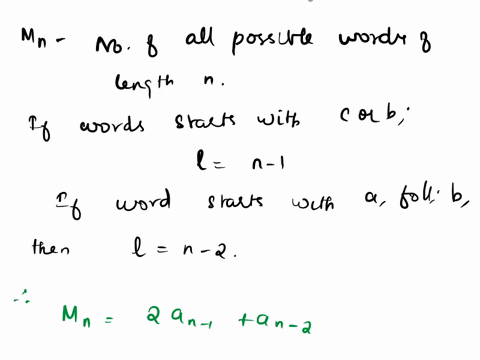 Mn - No. of all possible words of
length n.
If words starts with c or b;
l = n-1
If word starts with a, foll: b,
then l = n-2.
∴ Mn = 2 an-1 + an-2